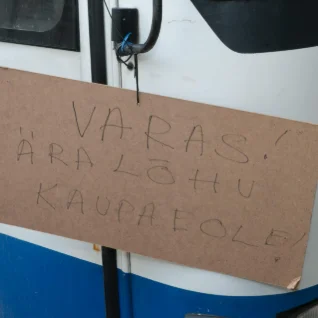 VARAS!
ÄRA LÕHU
KAUPA EOLE!